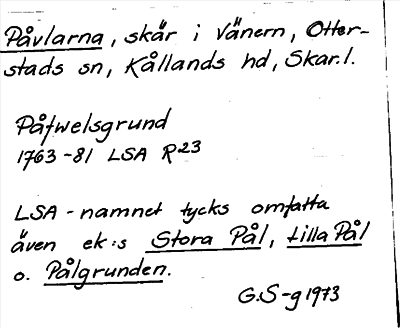 Påvlarna, skär i Vänern, Otter-
stads sn, Kållands hd, Skar.l.
Påfwelsgrund
1763-81 LSA R23
LSA-namnet tycks omfatta
även ek:s Stora Pål, Lilla Pål
o. Pålgrunden.
G.S-g 1973